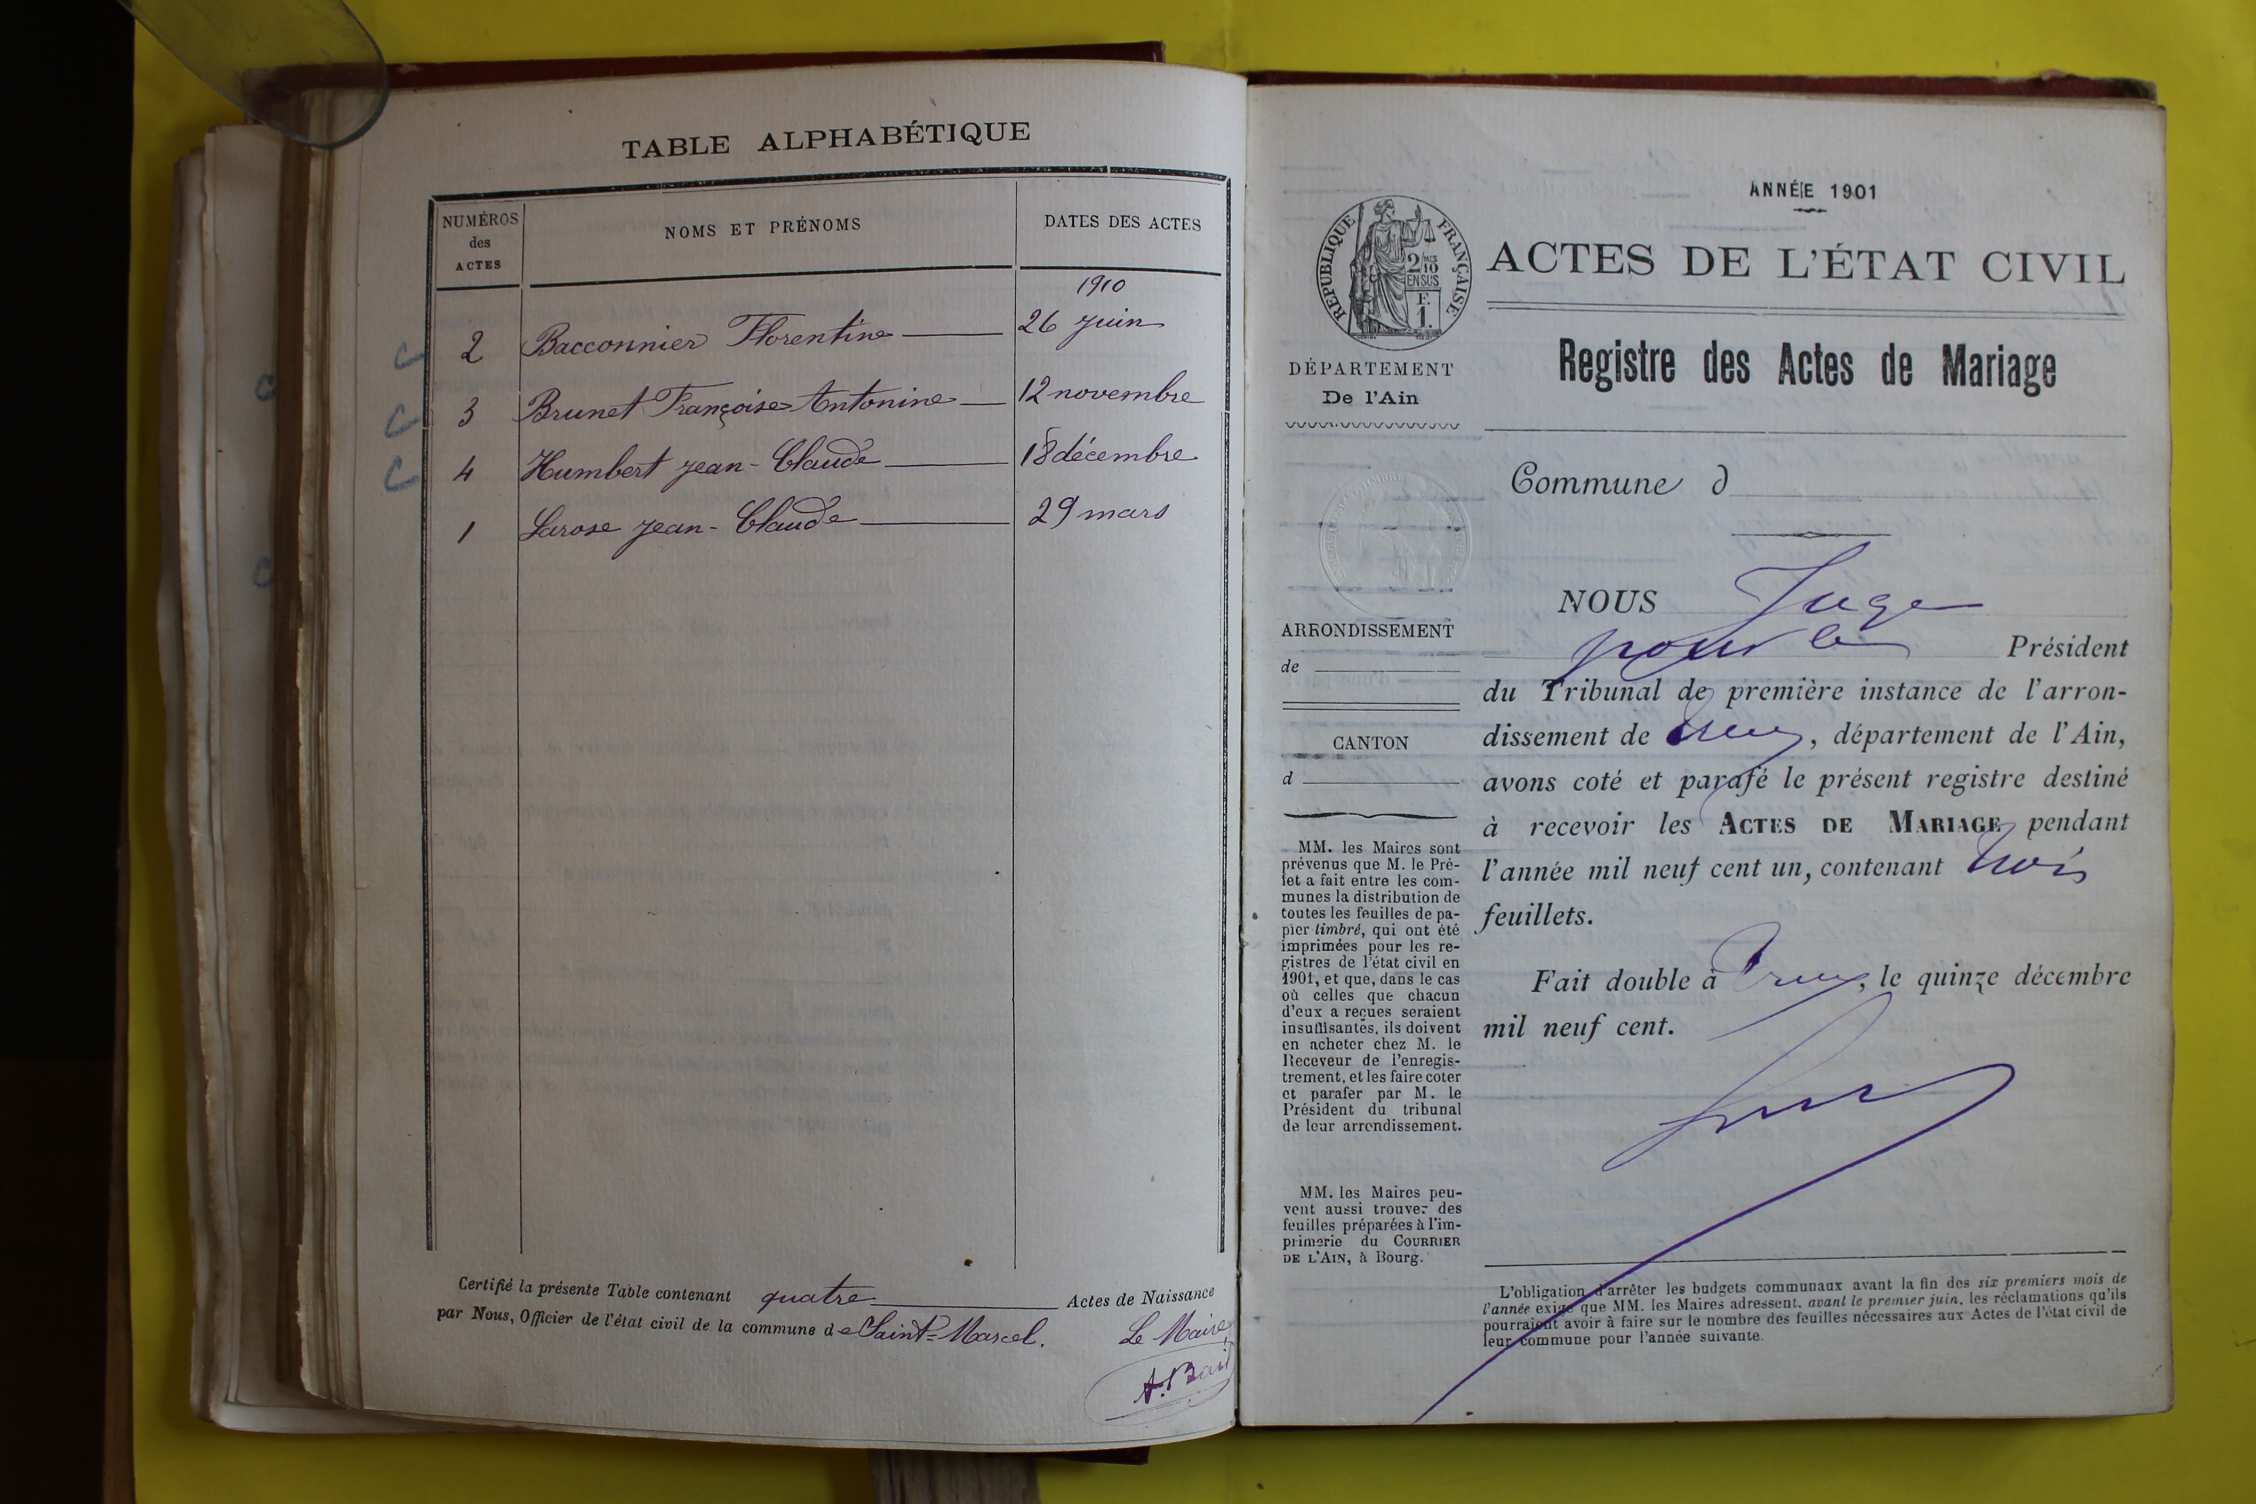 TABLE ALPHABÉTIQUE
NUMÉROS
des
ACTES
NOMS ET PRÉNOMS
DATES DES ACTES
1910
2 Bacconnier Florentine 26 juin
3 Brunet Françoise Antonine 12 novembre
4 Humbert Jean-Claude 18 décembre
1 Larose Jean-Claude 29 mars
Certifié la présente Table contenant quatre Actes de Naissance
par Nous, Officier de l'état civil de la commune de Saint-Marcel.
Le Maire
ANNÉE 1901
RÉPUBLIQUE FRANÇAISE
2/10
EN SUS
F.
1.
ACTES DE L'ÉTAT CIVIL
Registre des Actes de Mariage
DÉPARTEMENT
De l'Ain
Commune d
ARRONDISSEMENT
de
CANTON
d
MM. les Maires sont
prévenus que M. le Pré-
fet a fait entre les com-
munes la distribution de
toutes les feuilles de pa-
pier timbré, qui ont été
imprimées pour les re-
gistres de l'état civil en
1901, et que, dans le cas
où celles que chacun
d'eux a reçues seraient
insuffisantes, ils doivent
en acheter chez M. le
Receveur de l'enregis-
trement, et les faire coter
et parafer par M. le
Président du tribunal
de leur arrondissement.
MM. les Maires peu-
vent aussi trouver des
feuilles préparées à l'im-
primerie du COURRIER
DE L'AIN, à Bourg.
NOUS Juge
pour le Président
du Tribunal de première instance de l'arron-
dissement de , département de l'Ain,
avons coté et parafé le présent registre destiné
à recevoir les ACTES DE MARIAGE pendant
l'année mil neuf cent un, contenant trois
feuillets.
Fait double à , le quinze décembre
mil neuf cent.
L'obligation d'arrêter les budgets communaux avant la fin des six premiers mois de
l'année exige que MM. les Maires adressent, avant le premier juin, les réclamations qu'ils
pourraient avoir à faire sur le nombre des feuilles nécessaires aux Actes de l'état civil de
leur commune pour l'année suivante.